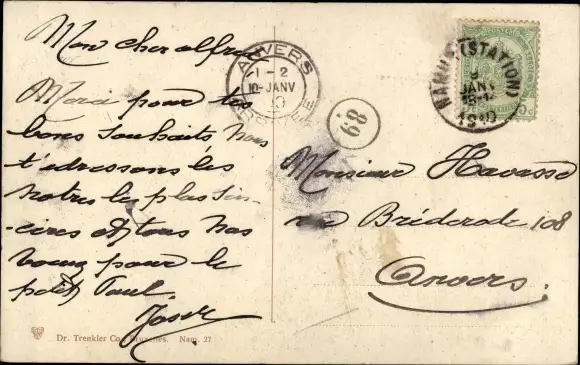 Mon cher alfred
Merci pour tes
bons souhaits, nous
t'adressons les
notres les plus sin-
-cères et tous nos
voeux pour le
petit Paul.
ANVERS
1-2
10 JANV
NAMUR (STATION)
9
JANV
1910
5c
68
Monsieur Havasse
rue Bréderode 108
Anvers.
Dr. Trenkler Co., Bruxelles. Nam. 27